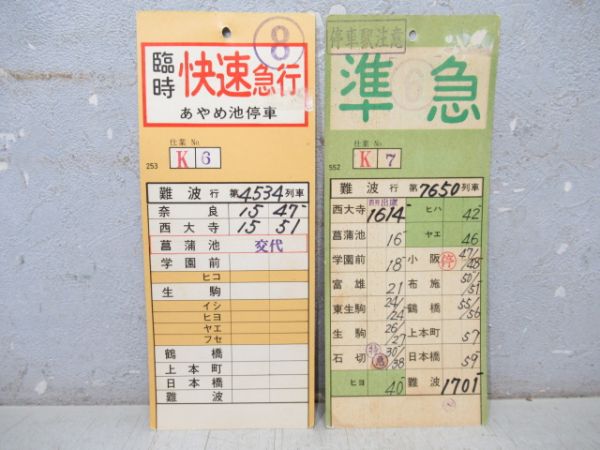 8
臨時
快速急行
あやめ池停車
仕業 No
253
K 6
難波行 第4534列車
奈良 15 47
西大寺 15 51
菖蒲池 交代
学園前
ヒコ
生駒
イシ
ヒヨ
ヤエ
フセ
鶴橋
上本町
日本橋
難波
停車駅注意
6
準急
仕業 No
552
K 7
難波行 第7650列車
西大寺 出庫 1614 ヒハ 42
菖蒲池 16 ヤエ 46
学園前 18 小阪 停 47/48
富雄 21 布施 50/51
東生駒 24/24 鶴橋 55/56
生駒 26/27 上本町 57
石切 30/38 日本橋 59
ヒヨ 40 難波 1701